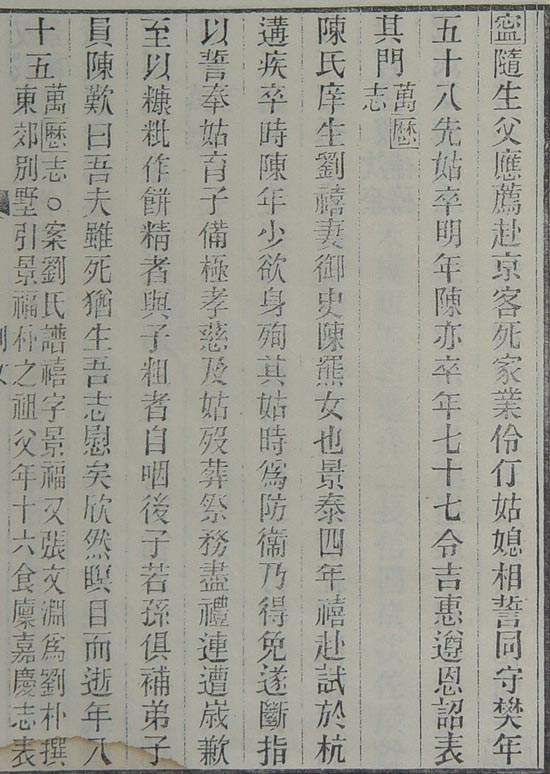 寍隨生父應薦赴京客死家業伶仃姑媳相誓同守樊年
五十八先姑卒明年陳亦卒年七十七令吉惠遵恩詔表
其門萬歷志
陳氏庠生劉禧妻御史陳羆女也景泰四年禧赴試於杭
遘疾卒時陳年少欲身殉其姑時爲防衞乃得免遂斷指
以誓奉姑育子備極孝慈及姑歿葬祭務盡禮連遭歲歉
至以糠粃作餅精者與子粗者自咽後子若孫俱補弟子
員陳歎曰吾夫雖死猶生吾志慰矣欣然瞑目而逝年八
十五萬歷志○案劉氏譜禧字景福又張文淵爲劉朴撰
東郊別墅引景福朴之祖父年十六食廩嘉慶志表